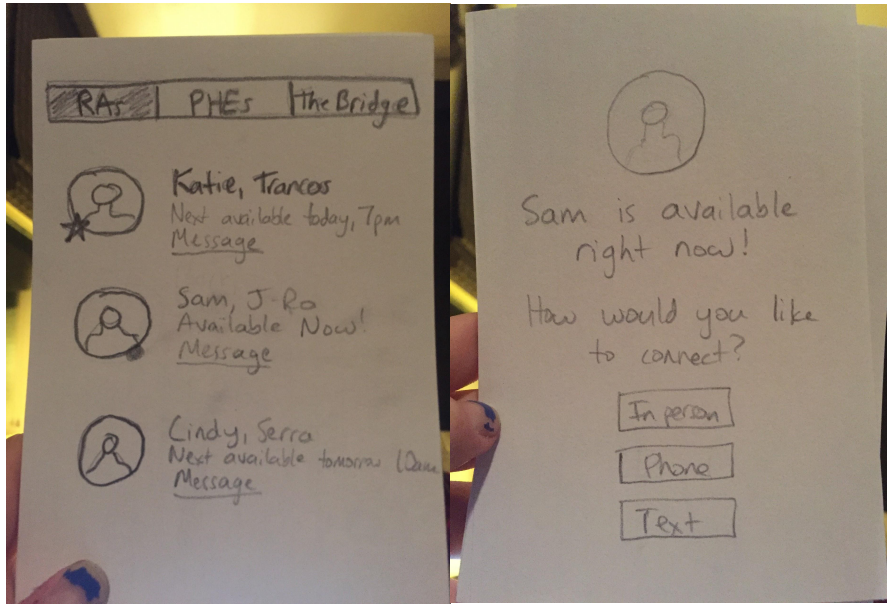 RAs PHEs The Bridge
Katie, Trancos
Next available today, 7pm
Message
Sam, J-Ro
Available Now!
Message
Cindy, Serra
Next available tomorrow 10am
Message
Sam is available
right now!
How would you like
to connect?
In person
Phone
Text